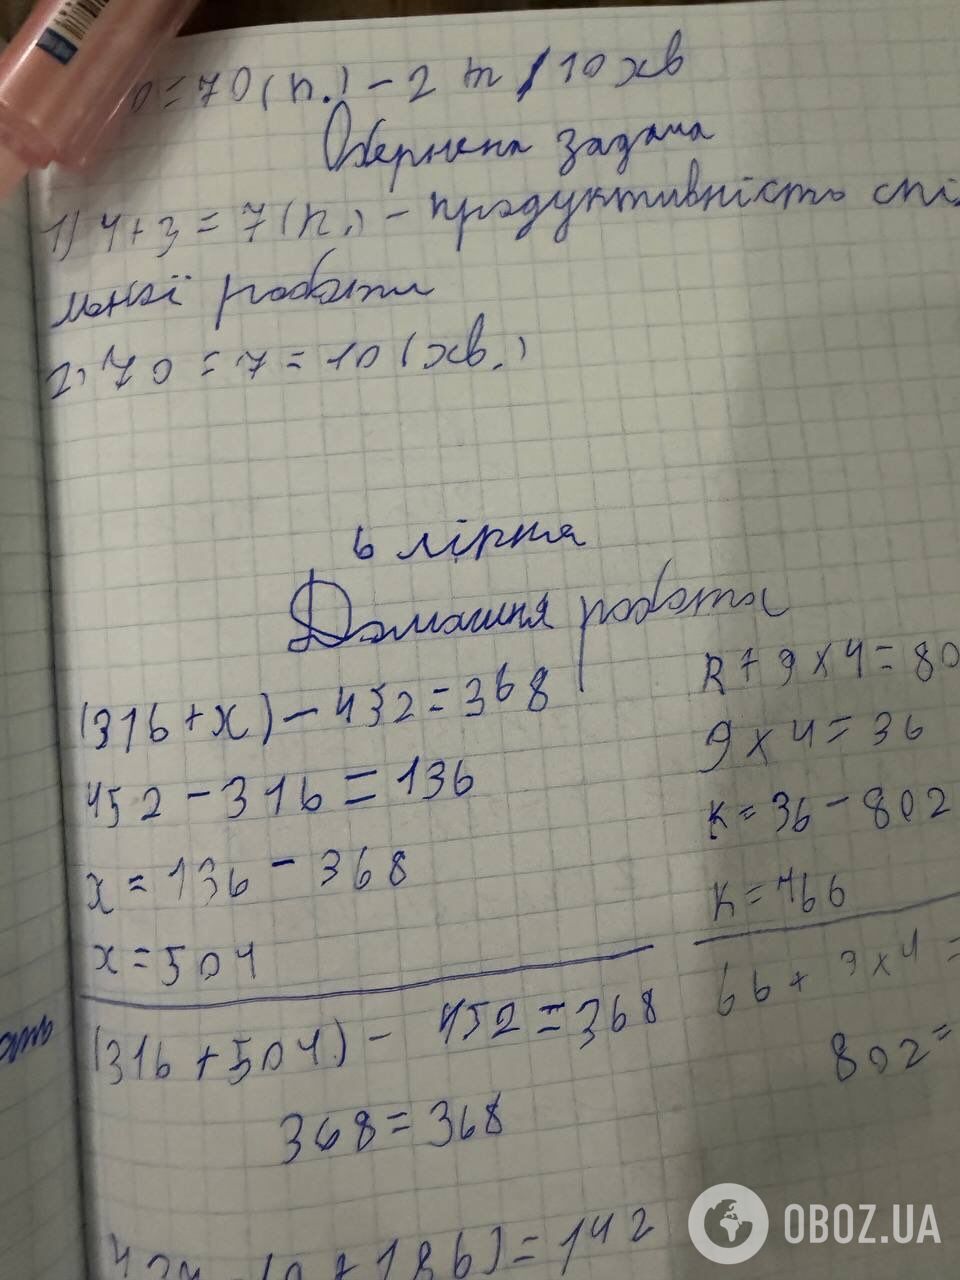 0 = 70 (п.) - 2 т / 10 хв
Обернена задача
1) 4 + 3 = 7 (п.) - продуктивність спі
льної роботи
2) 70 : 7 = 10 (хв.)
6 липня
Домашня робота
(316 + x) - 452 = 368
452 - 316 = 136
x = 136 - 368
x = 504
(316 + 504) - 452 = 368
368 = 368
+ 186) = 142
k + 9 x 4 = 80
9 x 4 = 36
k = 36 - 802
k = 766
66 + 9 x 4 =
802 =
ать
OBOZ.UA